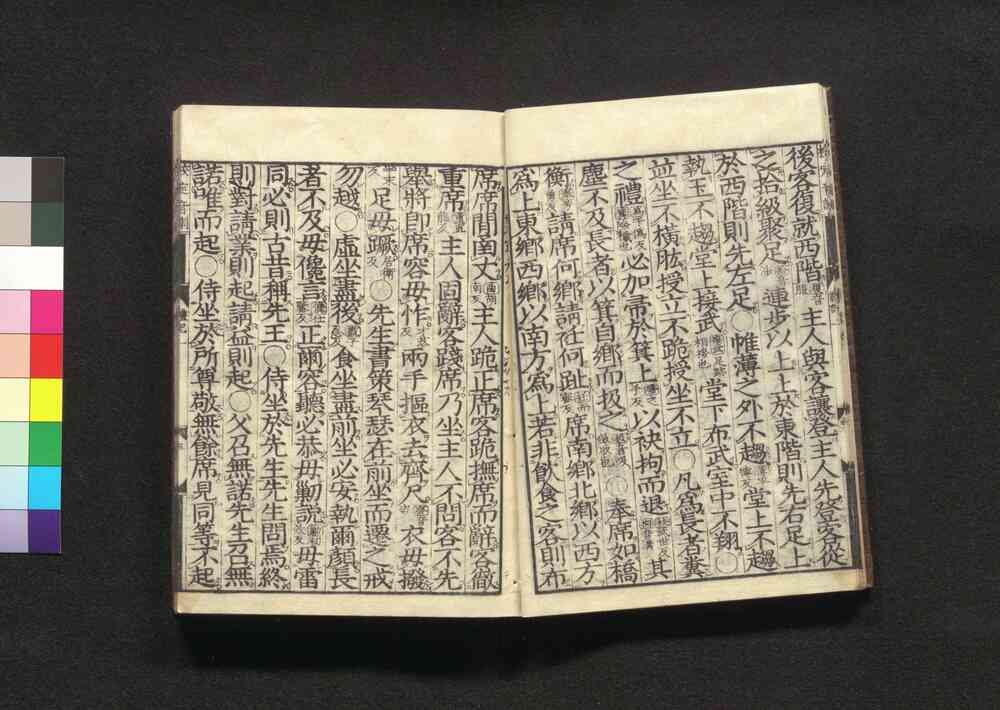 後客復就西階主人與客讓登主人先登客從
之拾級聚足連步以上上於東階則先右足上
於西階則先左足〇帷薄之外不趨堂上不趨
執玉不趨堂上接武堂下布武室中不翔〇
並坐不橫肱授立不跪授坐不立〇凡爲長者糞
之禮必加帚於箕上以袂拘而退其
塵不及長者以箕自鄉而扱之〇奉席如橋
衡請席何鄉請衽何趾席南鄉北鄉以西方
爲上東鄉西鄉以南方爲上若非飲食之客則布
席席間函丈主人跪正席客跪撫席而辭客徹
重席主人固辭客踐席乃坐主人不問客不先
舉將即席容毋怍兩手摳衣去齊尺衣毋撥
足毋蹶〇先生書策琴瑟在前坐而遷之戒
勿越〇虛坐盡後食坐盡前坐必安執爾顏長
者不及毋儳言正爾容聽必恭毋勦說毋雷
同必則古昔稱先王〇侍坐於先生先生問焉終
則對請業則起請益則起〇父召無諾先生召無
諾唯而起〇侍坐於所尊敬無餘席見同等不起